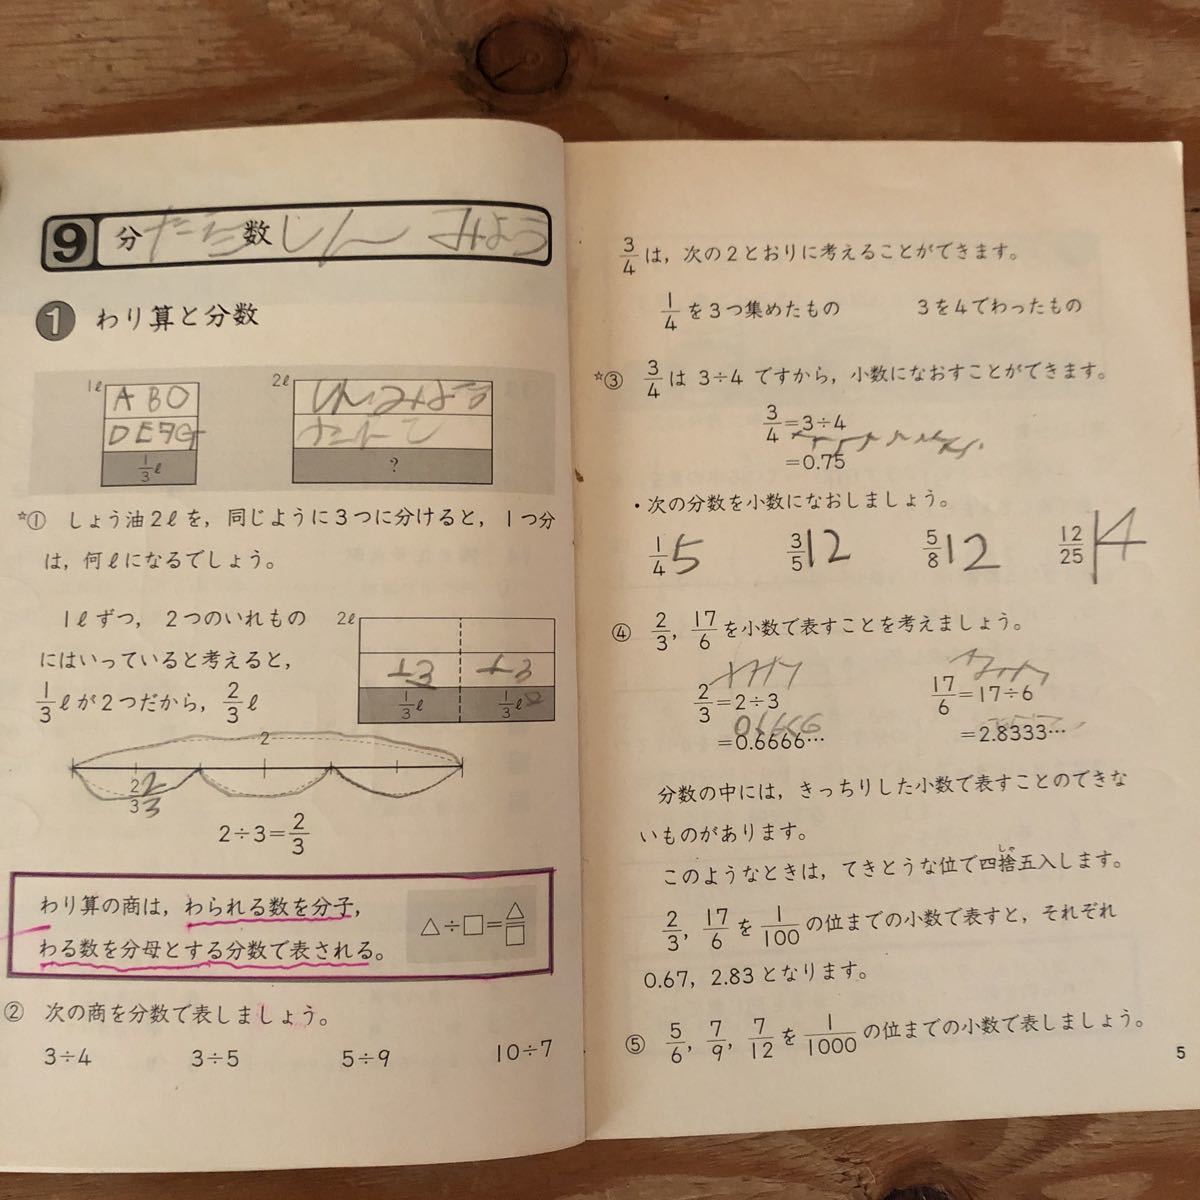 9 分 数
1 わり算と分数
1ℓ A B O
D E F G
1/3 ℓ
2ℓ
?
☆① しょう油2ℓを，同じように3つに分けると，1つ分
は，何ℓになるでしょう。
1ℓずつ，2つのいれもの
にはいっていると考えると，
1/3 ℓが2つだから，2/3 ℓ
2ℓ
1/3 ℓ 1/3 ℓ
2
2/3 2/3
2÷3=2/3
わり算の商は，わられる数を分子，
わる数を分母とする分数で表される。
△÷□=△/□
② 次の商を分数で表しましょう。
3÷4 3÷5 5÷9 10÷7
3/4 は，次の2とおりに考えることができます。
1/4 を3つ集めたもの 3を4でわったもの
☆③ 3/4 は 3÷4 ですから，小数になおすことができます。
3/4=3÷4
=0.75
・次の分数を小数になおしましょう。
1/4 5 3/5 12 5/8 12 12/25 14
④ 2/3，17/6 を小数で表すことを考えましょう。
2/3=2÷3
=0.6666…
17/6=17÷6
=2.8333…
分数の中には，きっちりした小数で表すことのできな
いものがあります。
このようなときは，てきとうな位で四捨五入します。
2/3，17/6 を 1/100 の位までの小数で表すと，それぞれ
0.67，2.83となります。
⑤ 5/6，7/9，7/12 を 1/1000 の位までの小数で表しましょう。
5